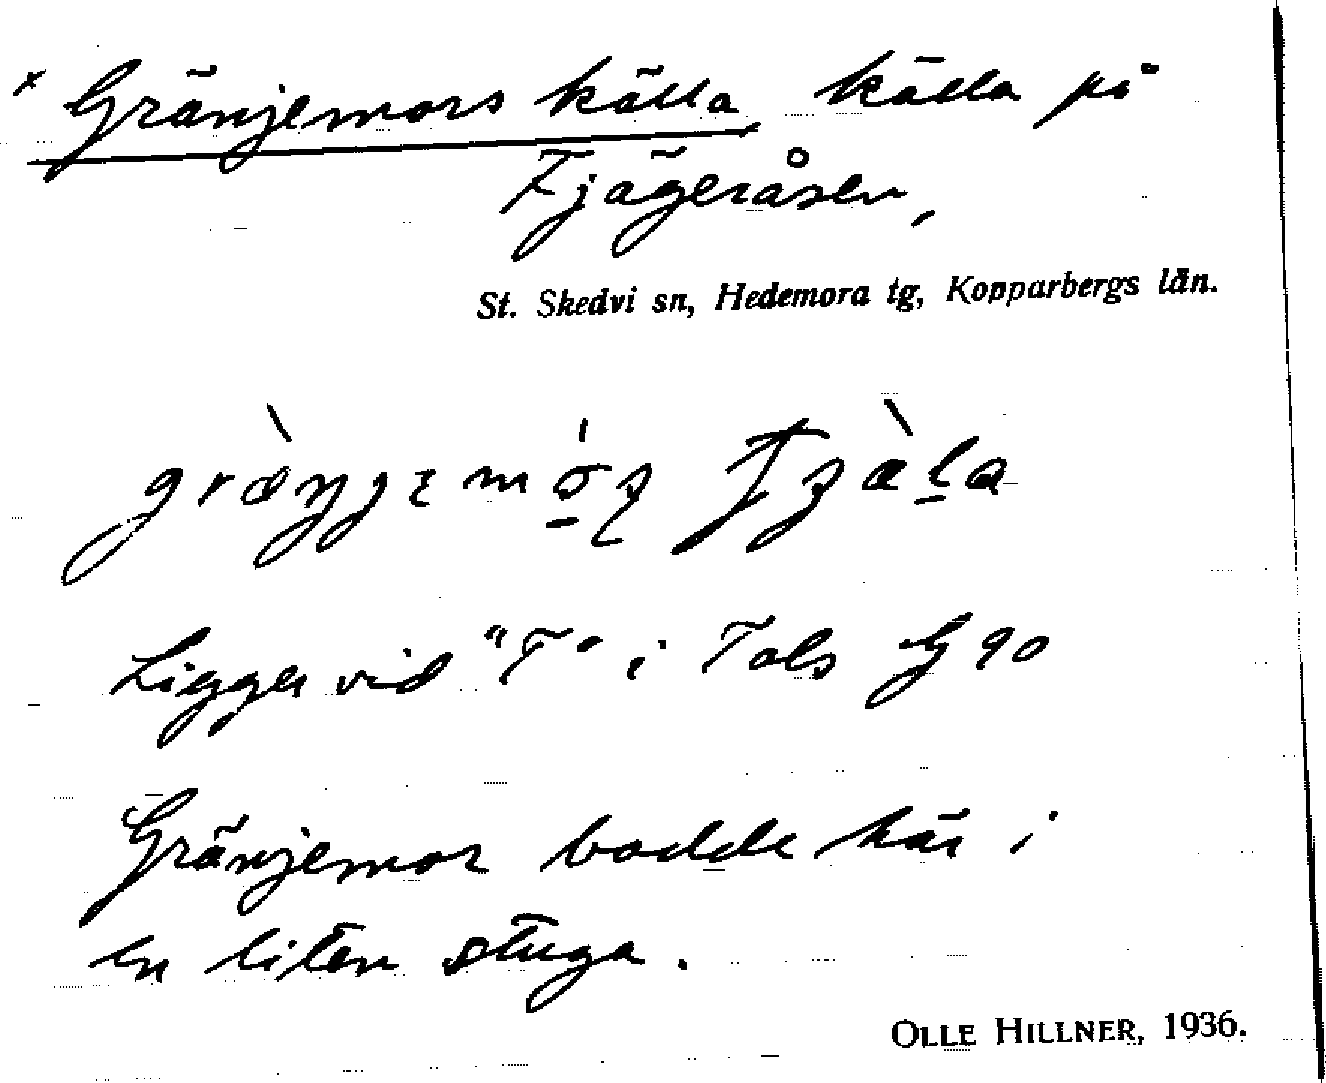 × Gränjemors källa källa på
Tjägeråsen,
St. Skedvi sn, Hedemora tg, Kopparbergs län.
Ligger vid "T" i Tols G 90
Gränjemor bodde här i
en liten stuga.
OLLE HILLNER, 1936.